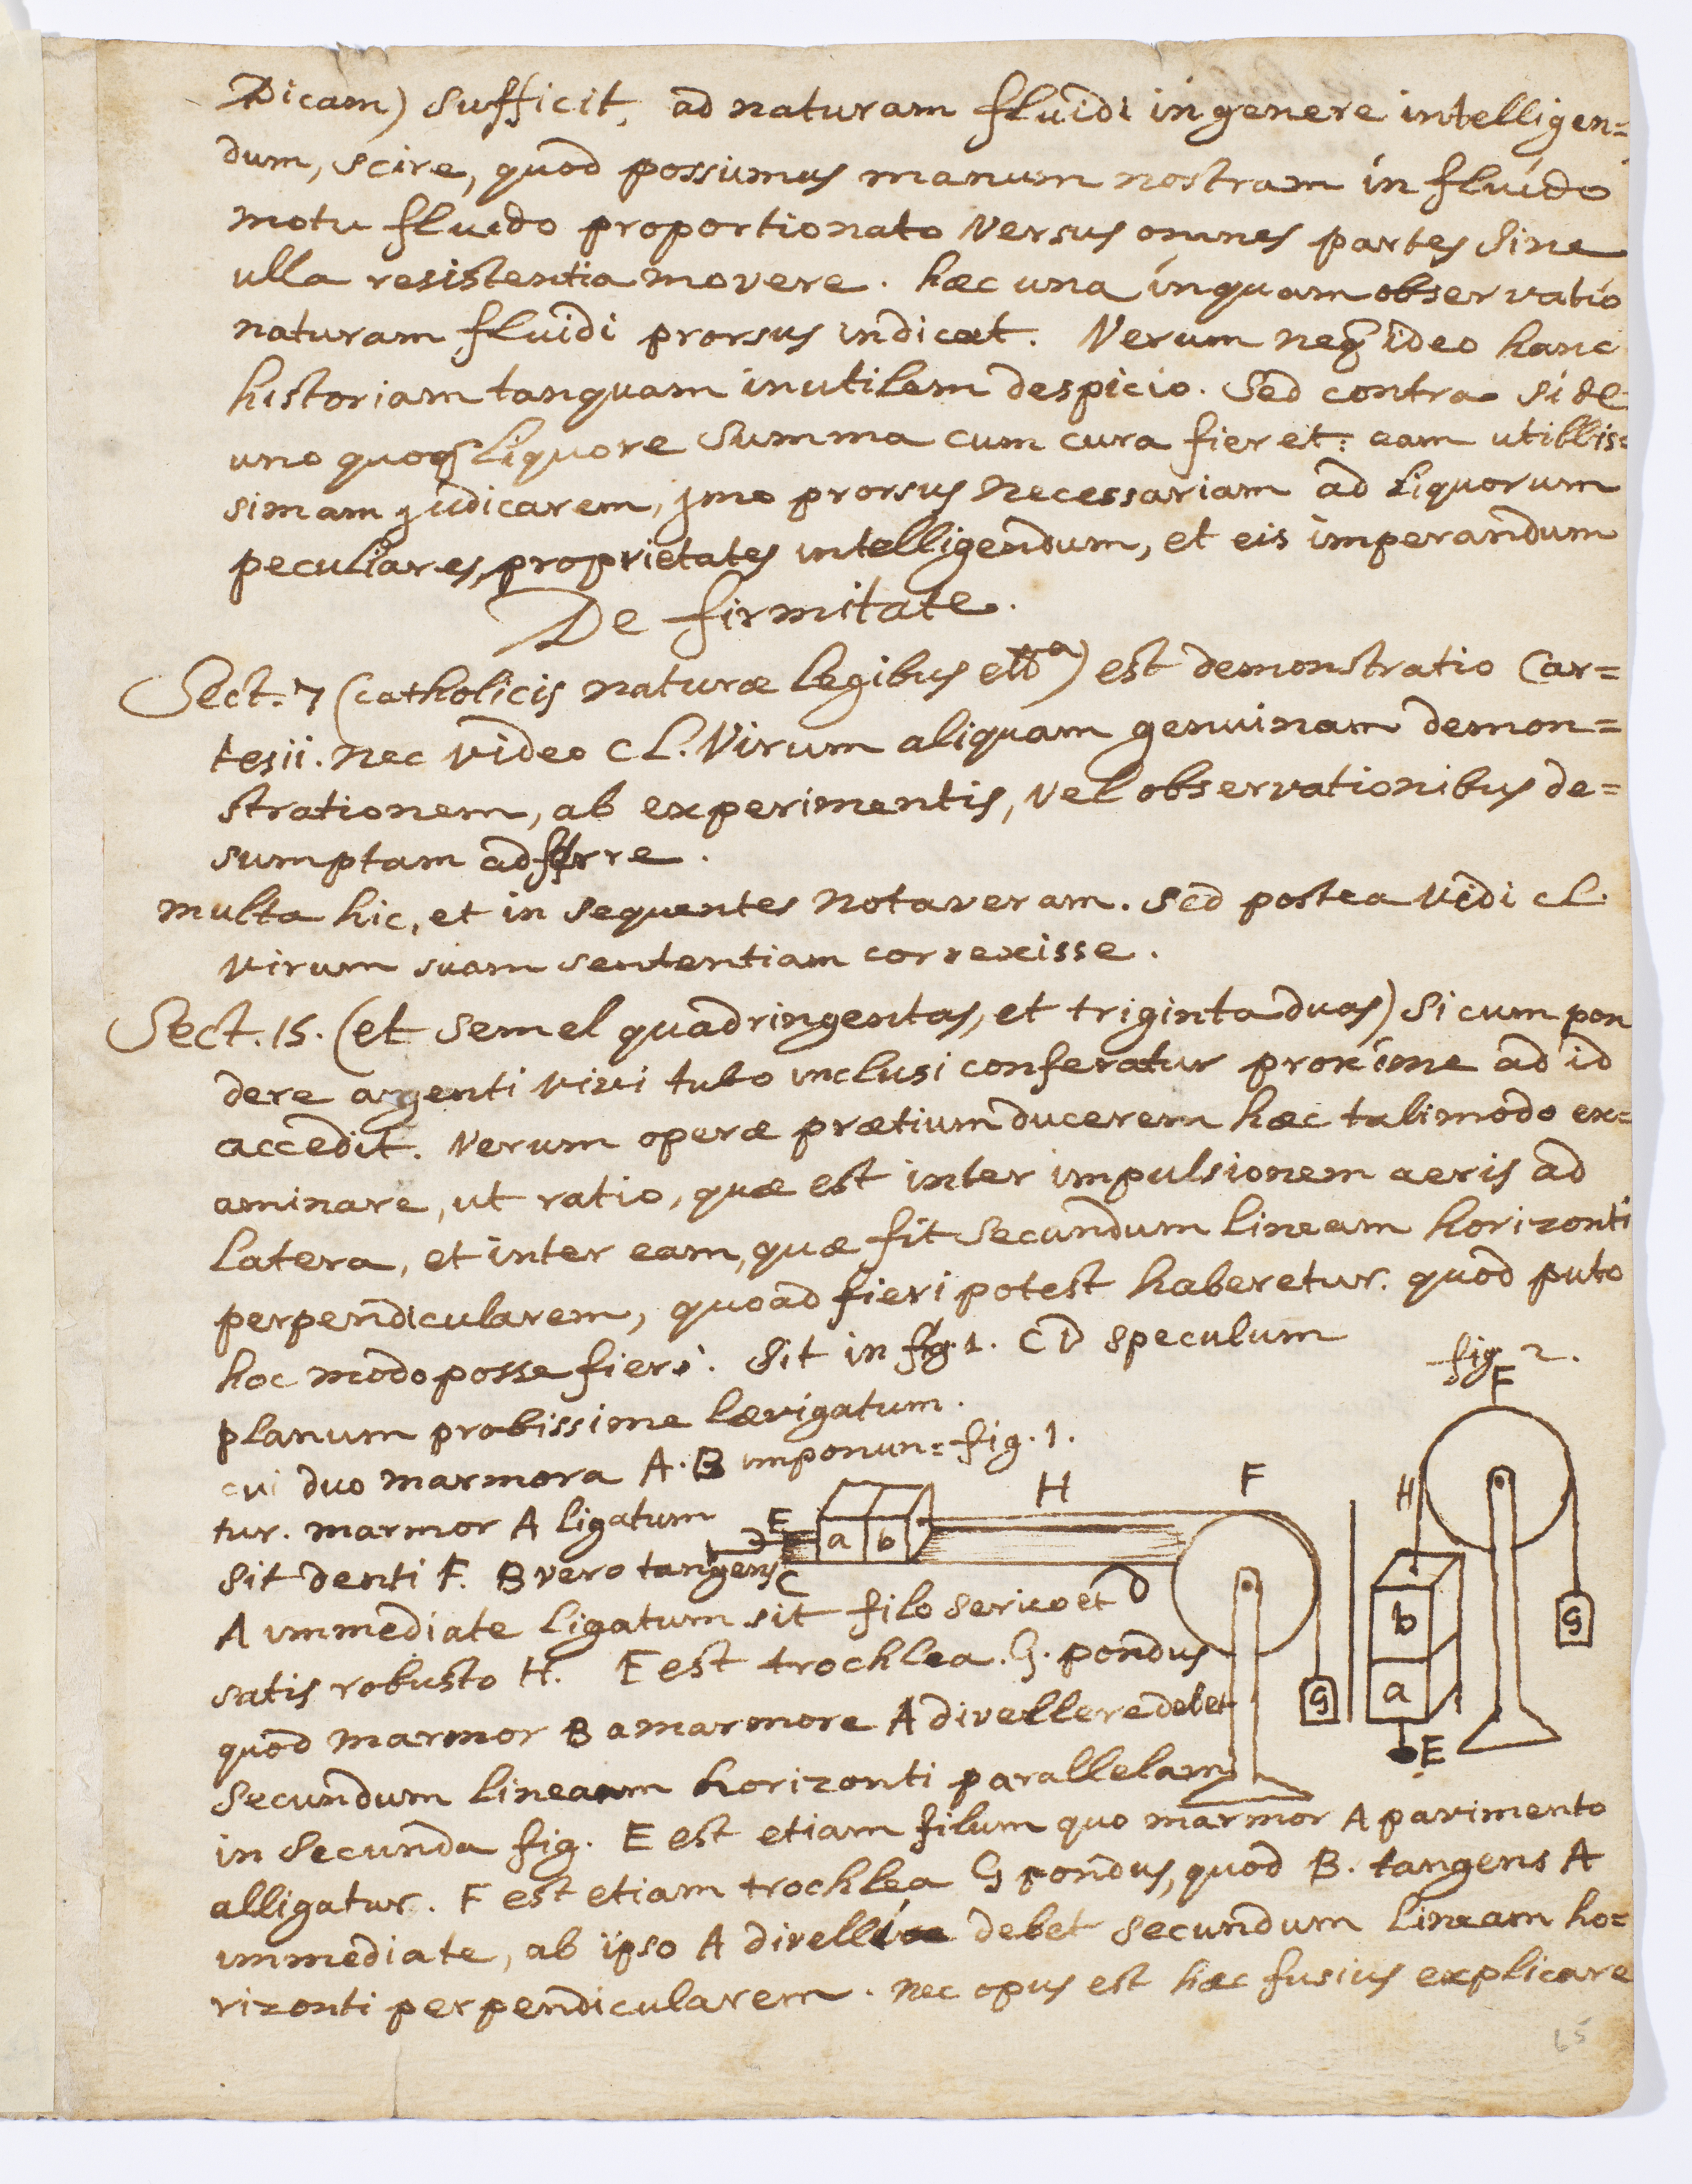 Dicam) sufficit, ad naturam fluidi in genere intelligen=
dum, scire, quod possumus manum nostram in fluido
motu fluido proportionato versus omnes partes sine
ulla resistentia movere. hæc una inquam observatio
naturam fluidi prorsus indicat. Verum neq ideo hanc
historiam tanquam inutilem despicio. Sed contra si de
uno quoq liquore summa cum cura fieret: eam utilis=
simam judicarem, jmo prorsus necessariam ad liquorum
peculiares proprietates intelligendum, et eis imperandum
De firmitate.
Sect. 7 (catholicis naturæ legibus etta) est demonstratio Car=
tesii. nec video cL. Virum aliquam genuinam demon=
strationem, ab experimentis, vel observationibus de=
sumptam adferre.
multa hic, et in sequentes notaveram. sed postea vidi cL.
virum suam sententiam correxisse.
Sect. 15. (et semel quadringentas, et triginta duas) si cum pon
dere argenti vivi tubo inclusi conferatur proxime ad id
accedit. Verum operæ prætium ducerem hæc tali modo ex=
aminare, ut ratio, quæ est inter impulsionem aeris ad
latera, et inter eam, quæ fit secundum lineam horizonti
perpendicularem, quoad fieri potest haberetur. quod puto
hoc modo posse fieri. Sit in fig. 1. CD speculum
fig 2.
planum probissime lævigatum.
cui duo marmora A. B imponun=
fig. 1.
tur. marmor A ligatum
sit denti E. B vero tangens
A immediate ligatum sit filo serico et
satis robusto H. F est trochlea. G. pondus
quod marmor B a marmore A divellere debet
secundum lineam horizonti parallelam
E
a b
H
F
C
D
G
F
H
b
a
G
E
in secunda fig. E est etiam filum quo marmor A pavimento
alligatur. F est etiam trochlea G pondus, quod B. tangens A
immediate, ab ipso A divellere debet secundum lineam ho=
rizonti perpendicularem. nec opus est hæc fusius explicare
65